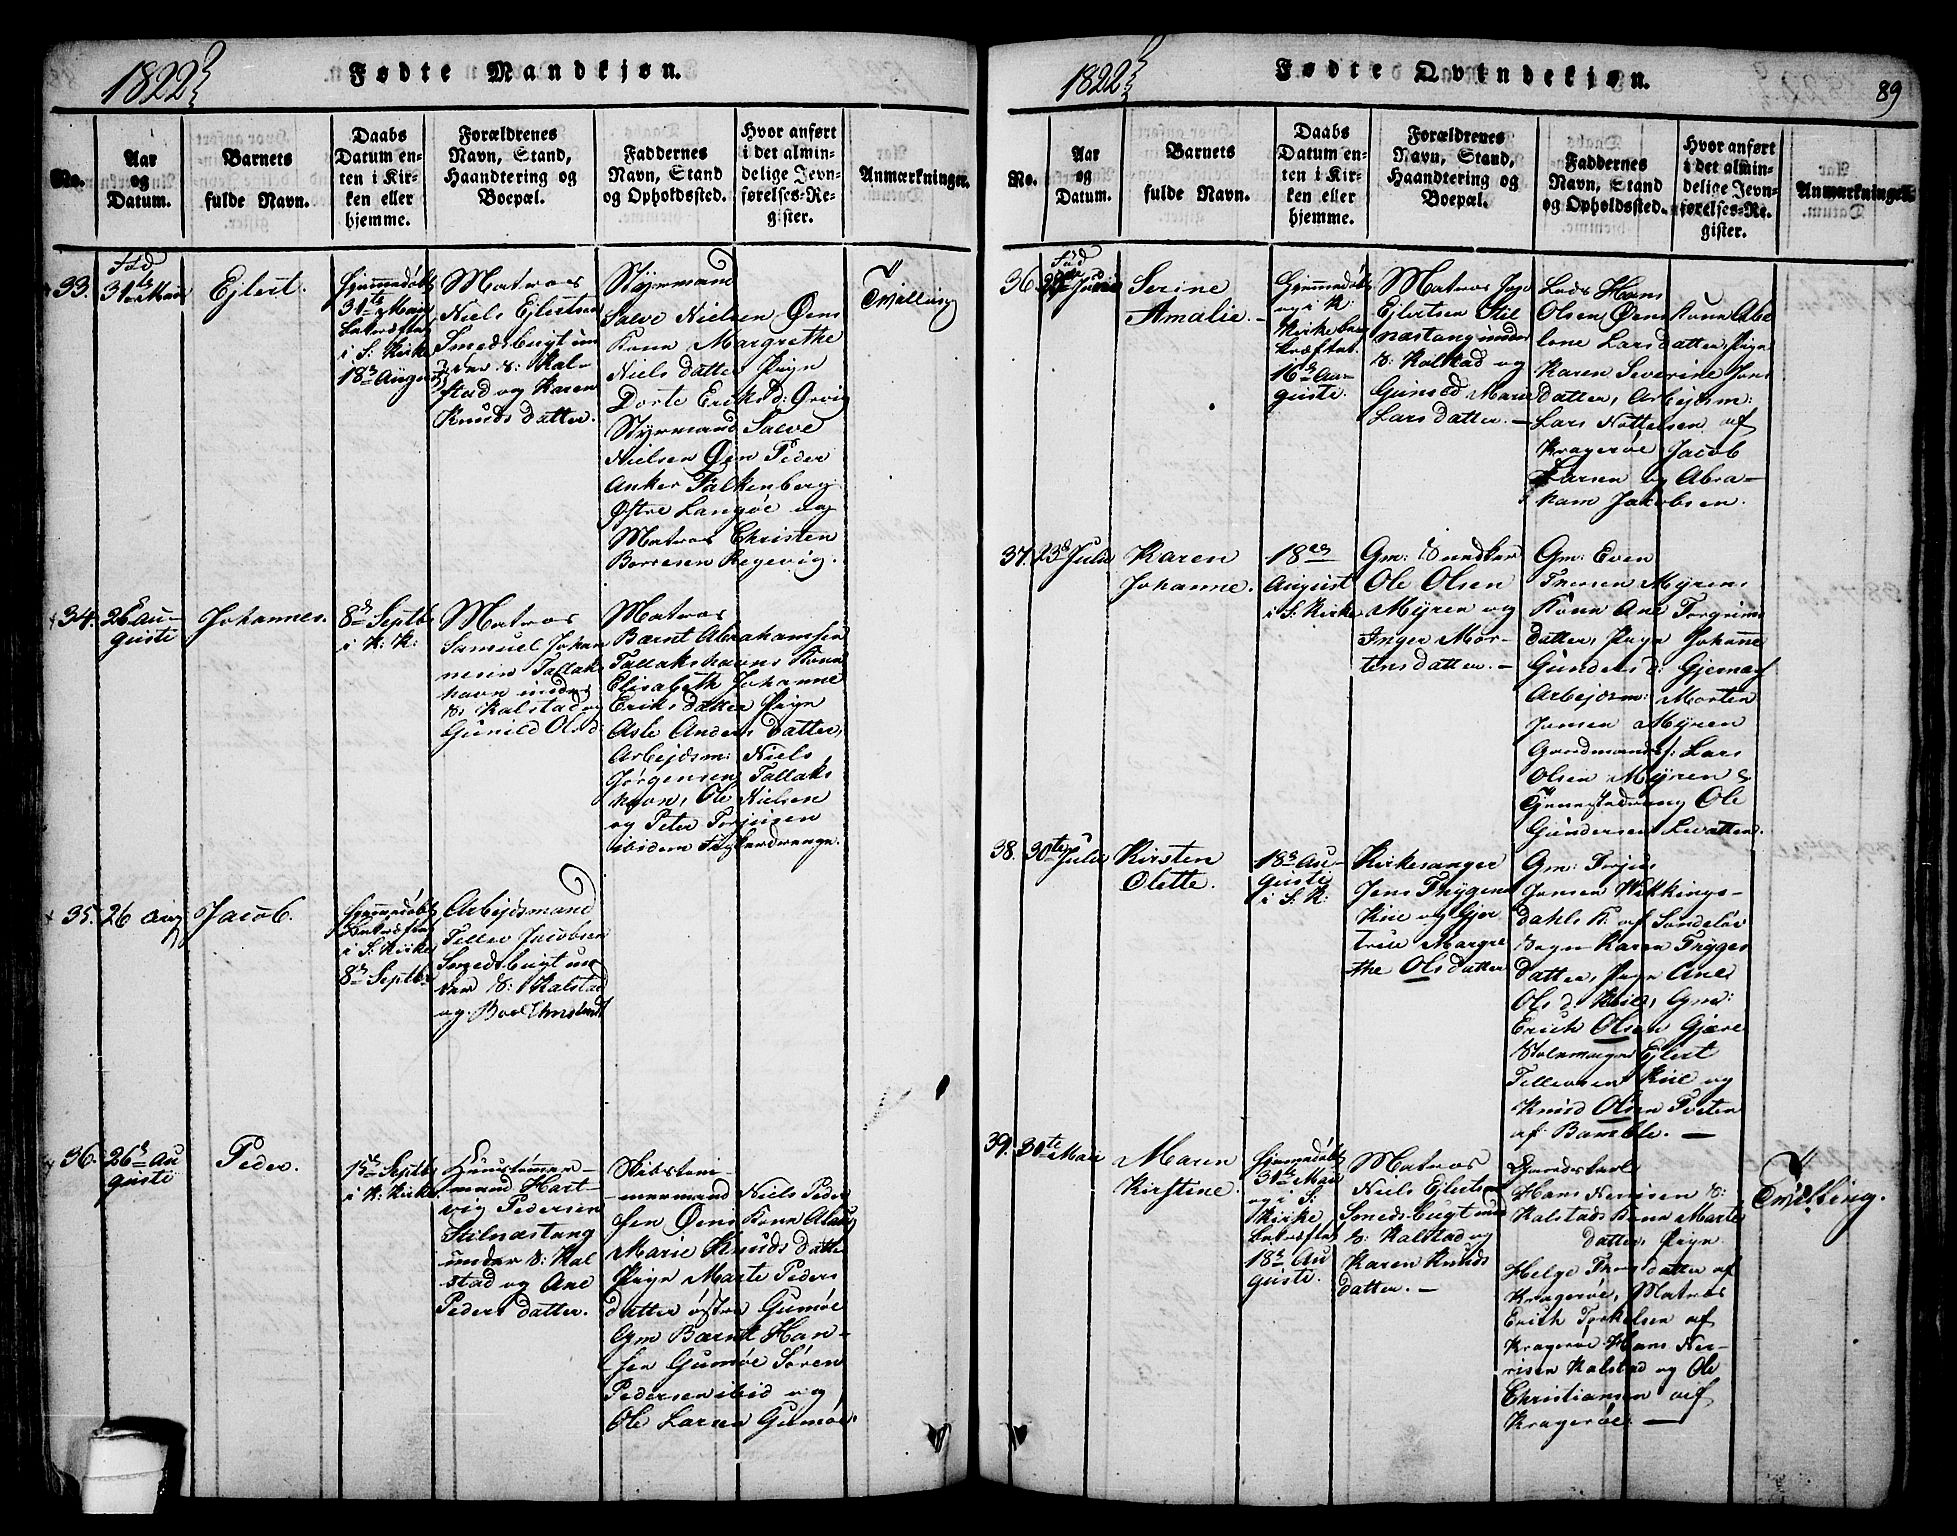 1822
Fødte Mandkjøn.
No.
Aar
og
Datum.
Barnets
fulde Navn.
Daabs
Datum en-
ten i Kir-
ken eller
hjemme.
Forældrenes
Navn, Stand,
Haandtering og
Boepæl.
Faddernes
Navn, Stand
og Opholdssted.
Hvor anført
i det almin-
delige Jevn-
førelses-Re-
gister.
Anmærkninger.
33.
Fød
31te Maii
Ejlert.
Hjemmedøbt
31te Maii
bekræftet
i S: Kirke
18de August
Matros
Niels Ejlertsen
Smedsbugt un
der S: Kal-
stad og Karen
Knudsdatter.
Styrmand
Salve Nielsen Øens
Kone Margrethe
Nielsdatter Pige
Dorte Eriksd: Ørvig
Styrmand Salve
Nielsen Øen Peder
Anker Falkenberg
Østre Langøe og
Matros Christen
Borresen Regevig.
Tvilling
34.
26 Au-
gusti
Johannes.
8de Septb.
i K: K:
Matros
Samuel Johan
nesen Tallaks
havn under
S: Kalstad og
Gunild Olsd
Matros
Bærnt Abrahamsen
Tallakshavns Kone
Elisabeth Johanne
Eriksdatter Pige
Asle Andersdatter,
Arbejdsm: Niels
Jørgensen Tallaks
havn, Ole Nielsen
og Peter Torjusen
ibidem
35.
26 Aug
Jacob.
Hjemmedøbt
bekræftet
i S: Kirke
8de Septbr
Arbejdsmand
Tellev Jacobsen
Smedsbugt un
der S: Kalstad
og
36.
26de Au
gusti
Peder.
15de Septb
i K: Kirke
Huustømmer-
mand Hart-
vig Pedersen
Stilnæstang
under S: Kal
stad og Ane
Pedersdatter.
Skibstøm-
mermand Niels Peder
sen Øens Kone
Marie Knudsdatter
Pige Marte Peders
datter østre Gumøe
Gm Bærnt Han-
sen Gumøe Søren
Pedersen ibid og
Ole Larsen Gumøe.
1822
Fødte Qvindekjøn.
89
No.
Aar
og
Datum.
Barnets
fulde Navn.
Daabs
Datum en-
ten i Kir-
ken eller
hjemme.
Forældrenes
Navn, Stand,
Haandtering og
Boepæl.
Faddernes
Navn, Stand
og Opholdssted.
Hvor anført
i det almin-
delige Jevn-
førelses-Re-
gister.
Anmærkninger.
36.
Fød
Serine
Amalie.
Hjemmedøbt
og i K:
Kirke be
kræftet
16de Au-
gusti.
Matros
Ejlertsen Stil
næstang under
S: Kalstad og
Gunild Marie
Larsdatter.
Lods Hans
Olsen Øens Kone Abe
lone Larsdatter, Pige
Karen Severine Jens
datter, Arbejdsm:
Lars Nottelsen af
Kragerøe Jacob
Larsen og Abra-
ham Jakobsen.
37.
23de Julii
Karen
Johanne.
18de
August
i S: Kirke
Gm:
Ole Olsen
Myren og
Inger Mor-
tensdatter.
Gm: Even
Myrens
Kone Ane Torgrims
datter, Pige Johanne
Gundersd:
Arbejdsm: Morten
Jensen Myren
Gaardmands: Lars
Olsen Myren &
Ole
Gundersen
38.
30te Julii
Kirsten
Olette.
18de Au-
gusti
i S: K:
Kirkesanger
Jens Thygesen
Kiil og Gjer
trud Margre
the Olsdatter
Gm: Torjus
Jensen Wikkings-
dahls K: af Søndeløv
Sogn Karen Trygges
datter, Pige Ane
Olsd: Kiil, Gm:
Erich Olsen Gjære
Skolemager Ejlert
Tellevsen Kiil og
Knud Olsen
af Bamble.
39.
31te Maii
Maren
Kirstine.
Hjemmedøbt
31te Maii
og i S:
Kirke
bekræftet
18de Au
gusti.
Matros
Niels Ejlertsen
Smedsbugt und
S: Kalstad og
Karen Knuds
datter.
Hans S:
Kalstads Kone Marte
datter, Pige
Helge Thorsdatter af
Kragerøe, Matros
Erich Torkelsen af
Kragerøe Hans
Kalstad og Ole
Christiansen af
Kragerøe.
Tvilling.